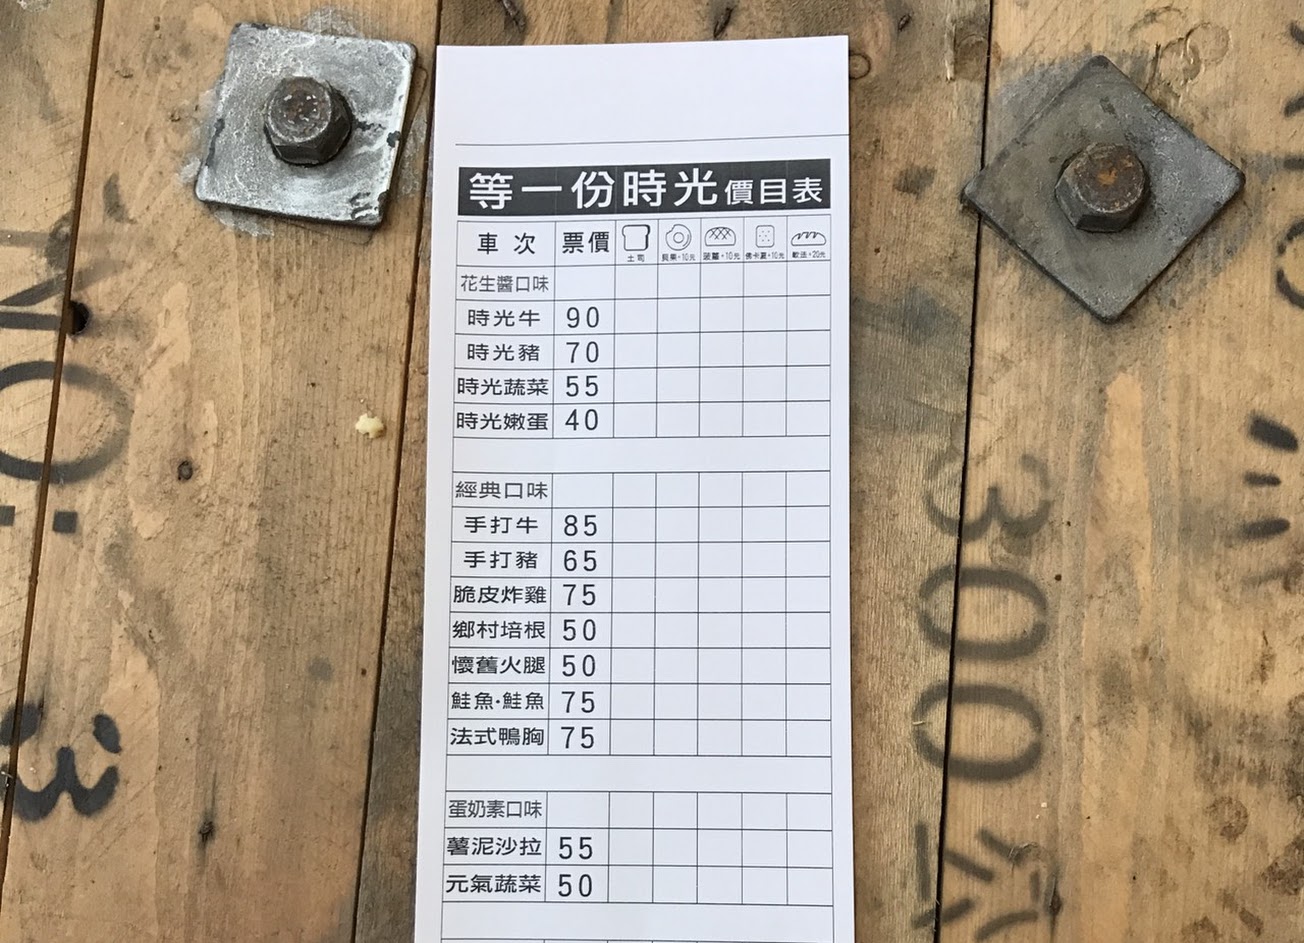 等一份時光價目表
車次 票價 土司 貝果+10元 菠蘿+10元 佛卡夏+10元 軟法+20元
花生醬口味
時光牛 90
時光豬 70
時光蔬菜 55
時光嫩蛋 40
經典口味
手打牛 85
手打豬 65
脆皮炸雞 75
鄉村培根 50
懷舊火腿 50
鮭魚·鮭魚 75
法式鴨胸 75
蛋奶素口味
薯泥沙拉 55
元氣蔬菜 50
300